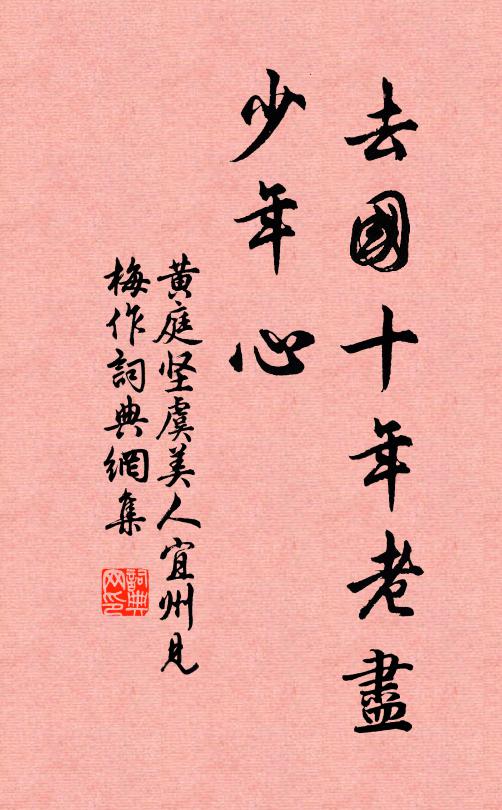 去國十年老盡
少年心
黄庭坚虞美人宜州見
梅作詞典網集
詞典
网印